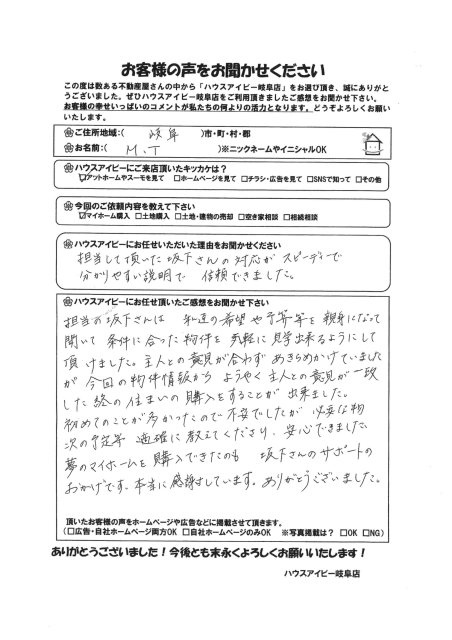 お客様の声をお聞かせください
この度は数ある不動産屋さんの中から「ハウスアイビー岐阜店」をお選び頂き、誠にありがと
うございました。ぜひハウスアイビー岐阜店をご利用頂きましたご感想をお聞かせ下さい。
お客様の幸せいっぱいのコメントが私たちの何よりの活力となります。どうぞよろしくお願い
いたします。
ご住所地域：( 岐阜 )市・町・村・郡
お名前：( M.T )※ニックネームやイニシャルOK
ハウスアイビーにご来店頂いたキッカケは？
☑アットホームやスーモを見て □ホームページを見て □チラシ・広告を見て □SNSで知って □その他
今回のご依頼内容を教えて下さい
☑マイホーム購入 □土地購入 □土地・建物の売却 □空き家相談 □相続相談
ハウスアイビーにお任せいただいた理由をお聞かせください
担当して頂いた坂下さんの対応が スピーディーで
分かりやすい説明で 信頼できました。
ハウスアイビーにお任せ頂いたご感想をお聞かせ下さい
担当の坂下さんは 私達の希望や予算等を親身になって
聞いて 条件に合った物件を 気軽に見学出来るようにして
頂けました。主人との意見が合わず あきらめかけていました
が 今回の物件情報から ようやく主人との意見が一致
した 終の住まいの購入をすることが 出来ました。
初めてのことが多かったので不安でしたが 必要な物
次の予定等 適確に教えてくださり、安心できました
夢のマイホームを購入できたのも 坂下さんのサポートの
おかげです。本当に感謝しています。ありがとうございました。
頂いたお客様の声をホームページや広告などに掲載させて頂きます。
(□広告・自社ホームページ両方OK □自社ホームページのみOK ※写真掲載は？ □OK □NG)
ありがとうございました！今後とも末永くよろしくお願いいたします！
ハウスアイビー岐阜店